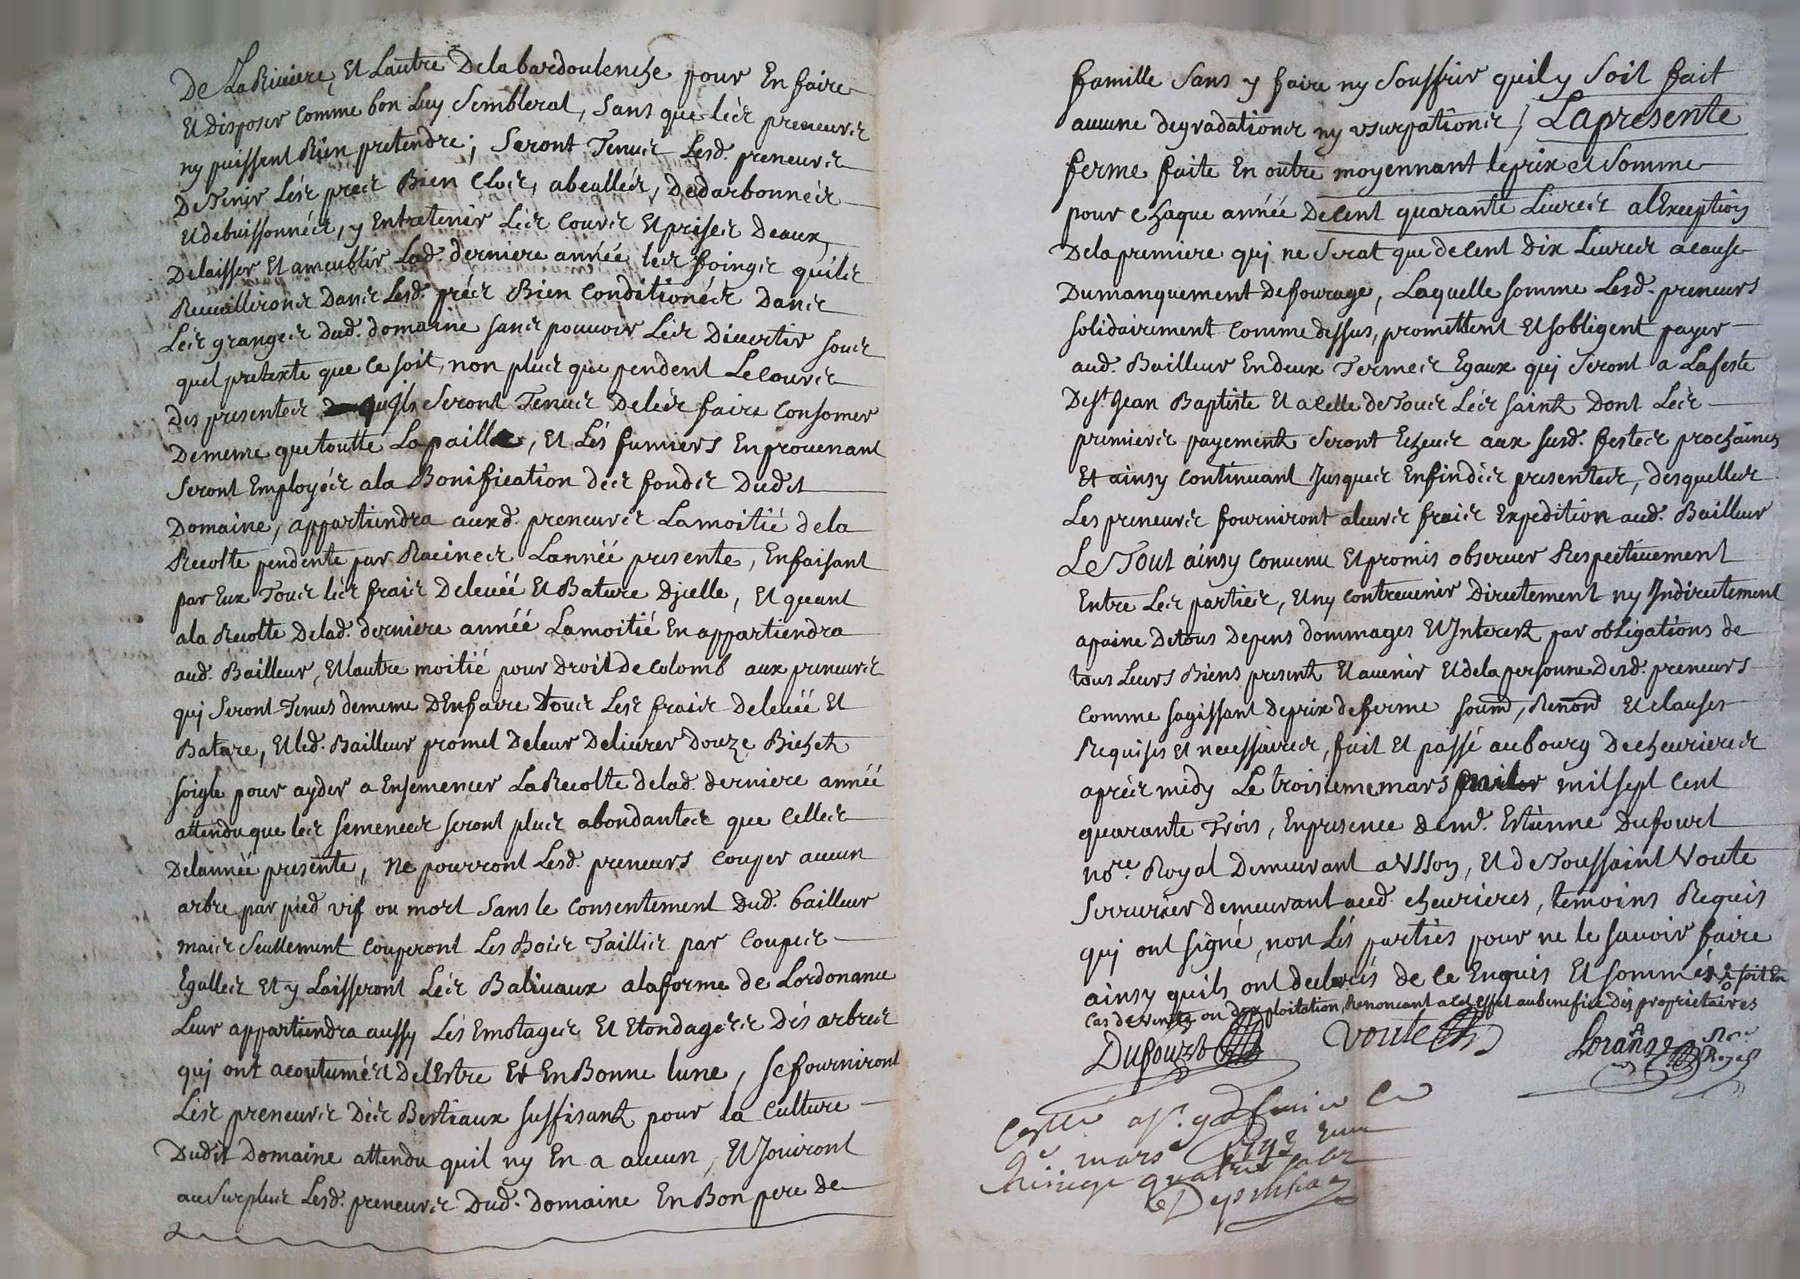 De La Riviere, Et Lautre Delabardoulenche pour En faire
Et Disposer Comme bon Luy Semblerat, Sans que les preneurs
ny puissent Rien pretendre; Seront Tenus Lesd. preneurs
De Tenir Les prés Bien Clos, abeallés, Dedarbonnés
Et debuissonnés, y Entretenir Les Cours Et prises Deaux,
Delaisser Et ameublir Lad. derniere année les foings quils
Recuillirons Dans Lesd. prés Bien Conditionés Dans
Les granges Dud. domaine sans pouvoir Les Divertir sous
quel pretexte que Ce soit, non plus que pendent Le Cours
Des presentes quils Seront Tenus De les faire Consomer
Dememe que toutte La paille, Et Lés fumiers En provenant
Seront Employés ala Bonification des fonds Dudit
Domaine, appartiendra auxd. preneurs La moitié de la
Recolte pendente par Racines Lannéé presente, En faisant
par Eux Tous les frais De levéé Et Bature Djcelle, Et quant
ala Recolte Delad. derniere annéé La moitié En appartiendra
aud. Bailleur, Et lautre moitié pour Droit de Colomb aux preneurs
qui Seront Tenus dememe DEn faire Tous Les frais De levéé Et
Bature, Et led. Bailleur promet De leur Delivrer Douze Bichets
soigle pour ayder a Ensemencer La Recolte Delad. derniere annéé
attendu que les semences seront plus abondantes que Celles
De lannéé presente, Ne pourront Lesd. preneurs Couper aucun
arbre par pied vif ou mort Sans le Consentement Dud. bailleur
mais Seullement Couperont Les Bois Taillis par Coupes
Egalles Et y Laisseront Les Balivaux ala forme de Lordonance
Leur appartiendra aussy Lés Emotages Et Etondages Dés arbres
qui ont acoutumés DelEstre Et En Bonne lune, se fourniront
Les preneurs Des Bestiaux suffisants pour la Culture
Dudit Domaine attendu quil ny En a aucun, Et Jouiront
au Surplus Lesd. preneurs Dud. Domaine En Bon pere de
famille Sans y faire ny Souffrir quil y Soit fait
aucune degradations ny vsurpations; La presente
ferme faite En outre moyennant le prix et Somme
pour Chaque année De Cent quarante Livres alException
De la premiere qui ne Serat que de Cent Dix Livres acause
Du manquement De fourage, Laquelle somme Lesd. preneurs
solidairement Comme dessus, promettent Et sobligent payer
aud. Bailleur En deux Termes Egaux qui Seront a La feste
De St. Jean Baptiste Et a Celle de Tous Les Saints Dont Les
premiers payements Seront Echeus aux susd. festes prochaines
Et ainsy Continuant Jusques Enfin Dés presentes, desquelles
Les preneurs fourniront a leurs frais Expedition aud. Bailleur
Le Tout ainsy Convenu Et promis observer Respectivement
Entre Les parties, Et ny Contrevenir Directement ny Jndirectement
a paine De tous Depens dommages Et Jnterests par obligations de
tous Leurs Biens presents Et avenir Et de la personne Desd. preneurs
Comme sagissant De prix de ferme soumd, Renond Et clauses
Requises Et necessaires, fait Et passé au bourg De chevrieres
aprés midy Le troisieme mars mil sept Cent
quarante Trois, En presence de md. Estienne Dufourt
nore. Royal Demeurant a Vsson, Et de Toussaint Voute
Serrurier demeurant aud. chevrieres, temoins Requis
qui ont signé, non Lés parties pour ne le savoir faire
ainsy quils ont declarés de Ce Enquis Et sommés soit En
Cas de vente ou dexploitation, Renoncant a Cet effet au benefice Dés proprietaires
Dufourt Voute Lorange Nre Royal
mars